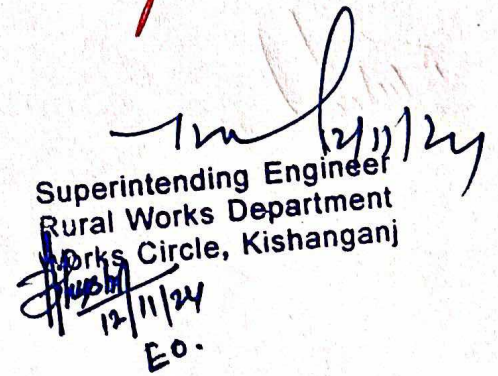 12/11/24
Superintending Engineer
Rural Works Department
Works Circle, Kishanganj
12/11/24
EO.